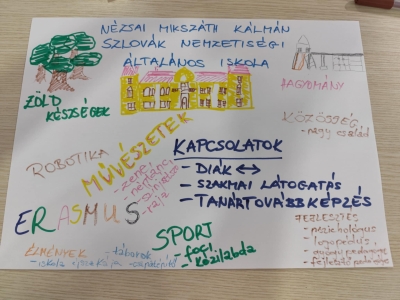 NÉZSAI MIKSZÁTH KÁLMÁN
SZLOVÁK NEMZETISÉGI
ÁLTALÁNOS ISKOLA
ZÖLD
KÉSZSÉGEK
HAGYOMÁNY
KÖZÖSSÉG
- nagy család
ROBOTIKA
MŰVÉSZETEK
- zene
- néptánc
- színjátszás
- rajz
KAPCSOLATOK
- DIÁK ↔
- SZAKMAI LÁTOGATÁS
- TANÁRTOVÁBBKÉPZÉS
ERASMUS
SPORT
- foci
- kézilabda
FEJLESZTÉS
- pszichológus
- logopédus
- gyógypedagógus
- fejlesztő pedagógus
ÉLMÉNYEK
- táborok
- iskola éjszakája
- csapatépítő